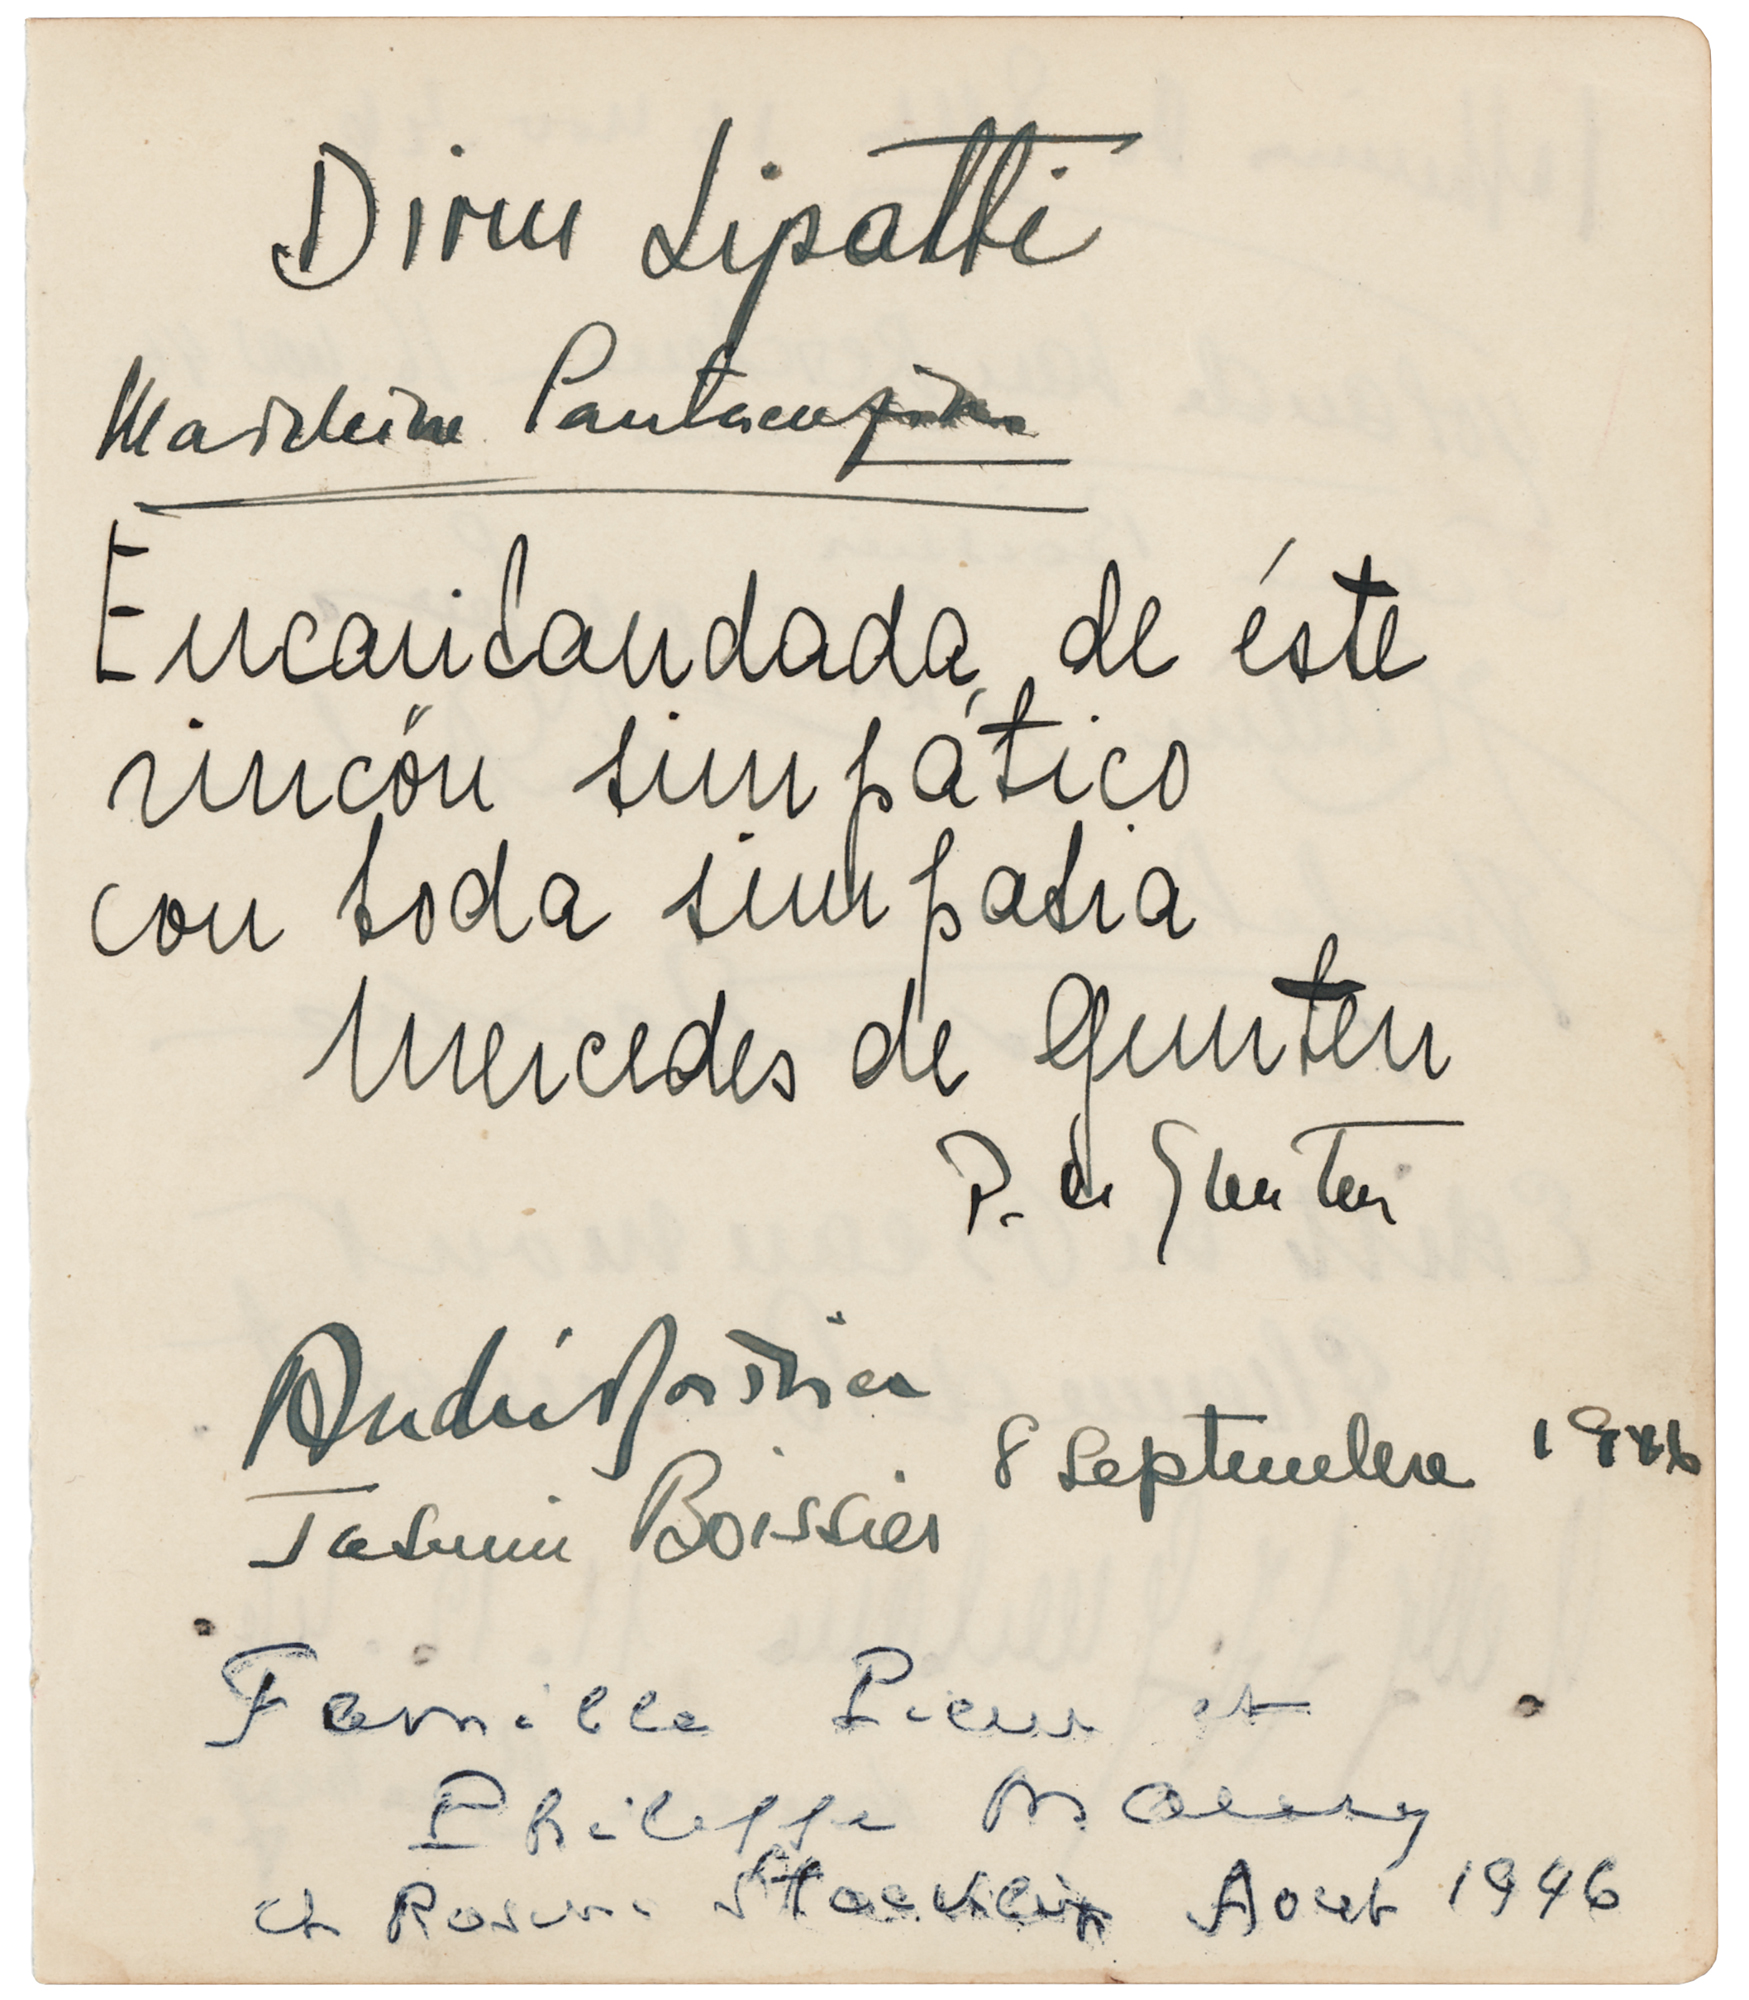 Dinu Lipatti
Madeleine
Encantandada de éste
rincón simpático
con toda simpatia
Mercedes de Gunten
P. de Gunten
André Boissier
8 Septembre 1946
Boissier
Famille Pierre et
Philippe
et Aout 1946